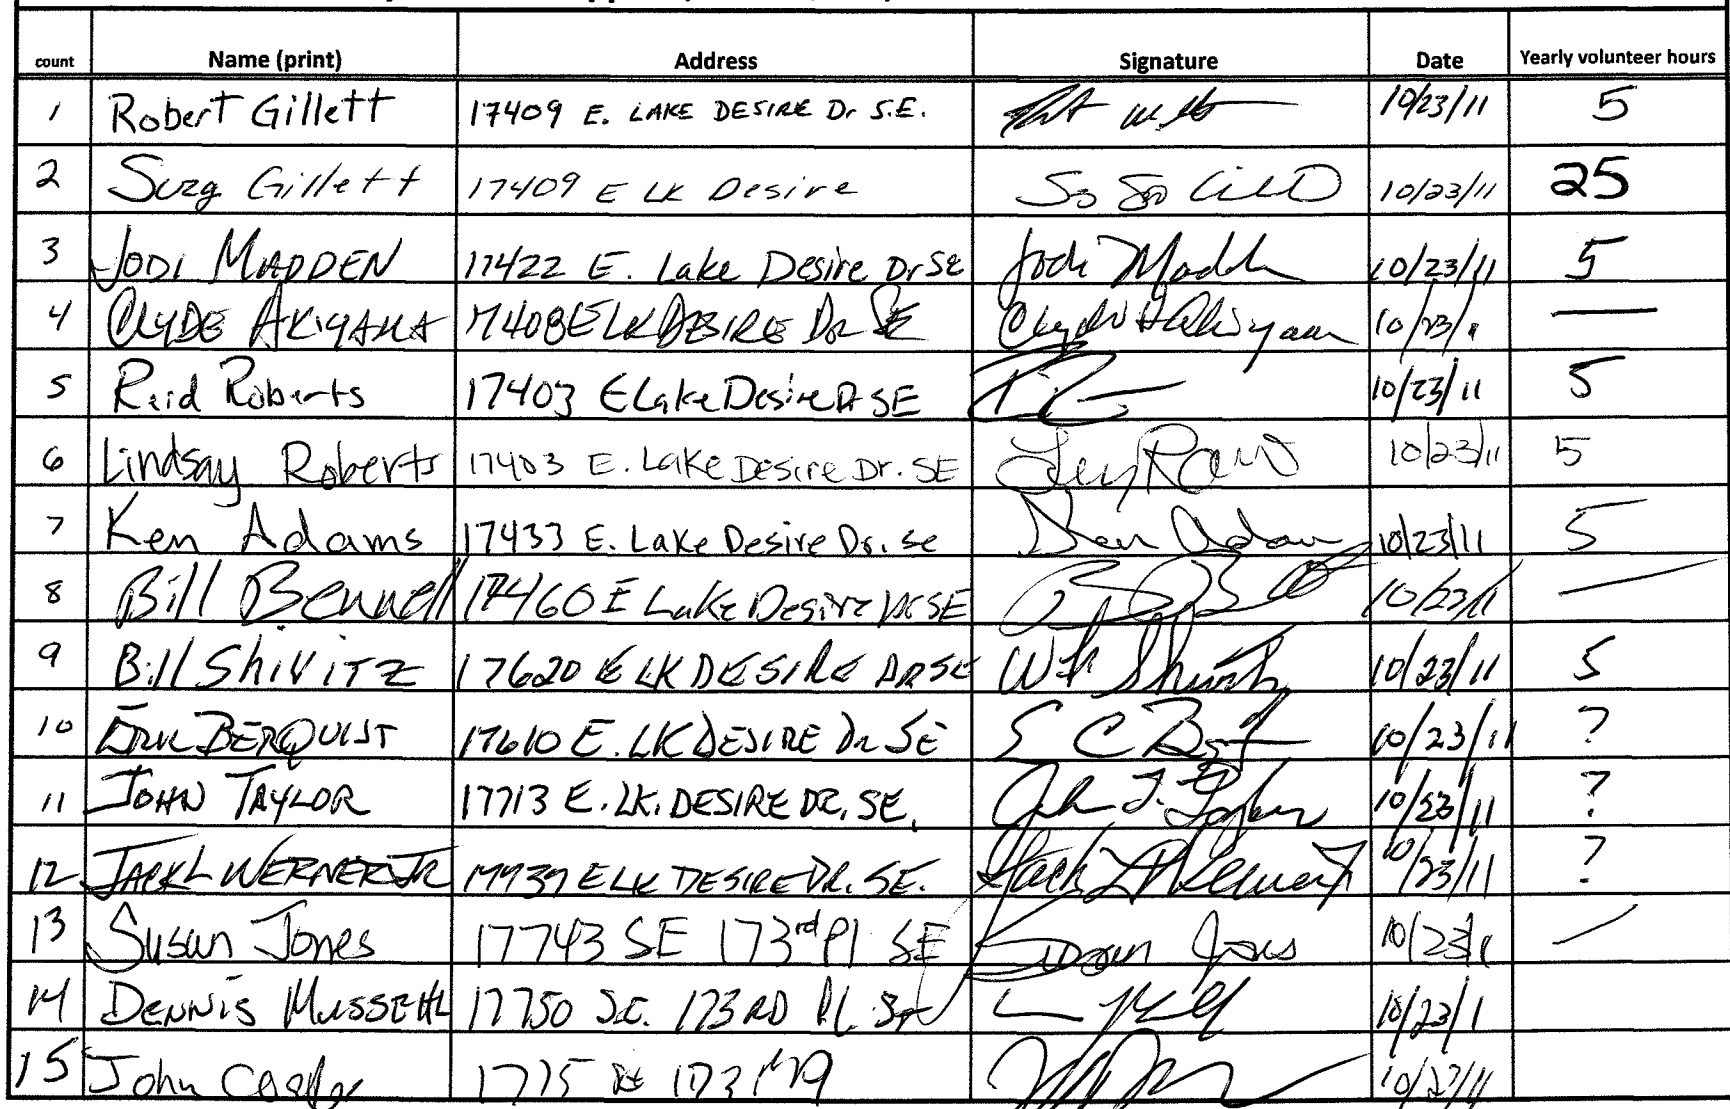 count Name (print) Address Signature Date Yearly volunteer hours
1 Robert Gillett 17409 E. LAKE DESIRE Dr S.E. 10/23/11 5
2 Gillett 17409 E LK Desire 10/23/11 25
3 JODI MADDEN 17422 E. Lake Desire Dr SE Jodi Madden 10/23/11 5
4 CLYDE AKIYAMA 17408 E LK DESIRE Dr SE 10/23/ —
5 Reid Roberts 17403 E Lake Desire Dr SE 10/23/11 5
6 Lindsay Roberts 17403 E. Lake Desire Dr. SE 10/23/11 5
7 Ken Adams 17433 E. Lake Desire Dr. se Ken Adams 10/23/11 5
8 Bill Bennell 17460 E Lake Desire Dr SE 10/23/11 —
9 Bill Shivitz 17620 E LK DESIRE DR SE 10/23/11 5
10 ERIC BERQUIST 17610 E. LK DESIRE Dr SE 10/23/11 ?
11 JOHN TAYLOR 17713 E. LK. DESIRE DR. SE. John T. Taylor 10/23/11 ?
12 JACK L WERNER JR E LK DESIRE DR. SE. 10/23/11 ?
13 Susan Jones 17743 SE 173rd Pl SE Susan Jones 10/23/11 —
14 DENNIS MUSSEHL 17750 S.E. 173RD Pl. SE 10/23/1
15 John 10/23/11